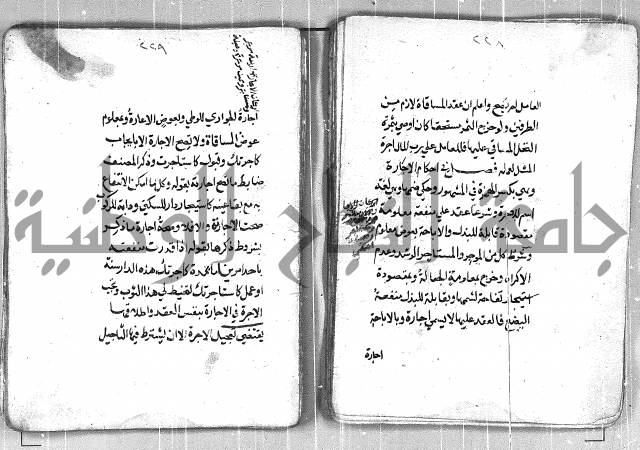 ٢٢٨
العامل له ربح واعلم ان عقد المساقاة لازم من
الطرفين ولو خرج الثمر مستحقا كان اوصى بثمرة
النخل المساقى عليها فللعامل على رب المال اجرة
المثل لعمله فصل في احكام الاجارة
وهي بكسر الهمزة في المشهور وحكي ضمها وهي لغة
اسم للاجرة وشرعا عقد على منفعة معلومة
مقصودة قابلة للبذل والاباحة بعوض معلوم
وشرط كل من الموجر والمستاجر الرشد وعدم
الاكراه وخرج بمعلومة الجعالة وبمقصودة
استيجار تفاحة لشمها وبقابلة للبذل منفعة
البضع فالعقد عليها لا يسمى اجارة وبالاباحة
اجارة
٢٢٩
اجارة الجواري للوطي وبعوض الاعارة وبمعلوم
عوض المساقاة ولا تصح الاجارة الا بايجاب
كاجرتك وقبول كاستاجرت وذكر المصنف
ضابط ما تصح اجارته بقوله وكل ما امكن الانتفاع
به مع بقاء عينه كاستيجار دار للسكنى ودابة للركوب
صحت اجارته والا فلا وصحة اجارة ما ذكر
بشروط ذكرها بقوله اذا قدرت منفعته
باحد امرين اما بمدة كاجرتك هذه الدار سنة
او عمل كاستاجرتك لتخيط لي هذا الثوب وتجب
الاجرة في الاجارة بنفس العقد واطلاقها
يقتضي تعجيل الاجرة الا ان يشترط فيها التاجيل
جامعة النجاح الوطنية